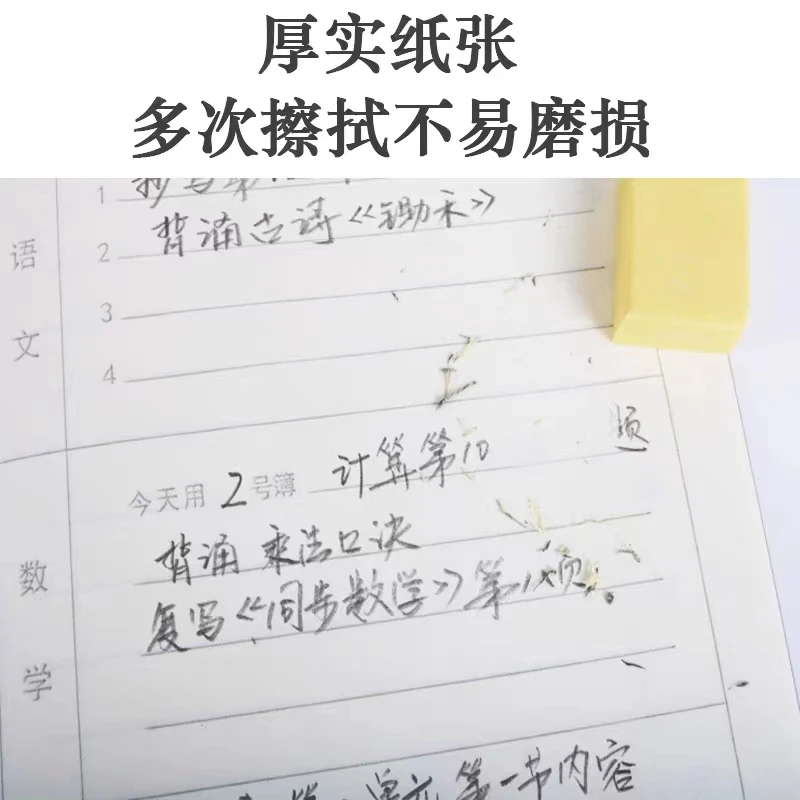 厚实纸张
多次擦拭不易磨损
语文
1 抄写第
2 背诵古诗《锄禾》
3
4
数学
今天用 2 号簿 计算第10 题
背诵 乘法口诀
复写《同步数学》第1页
第一节内容